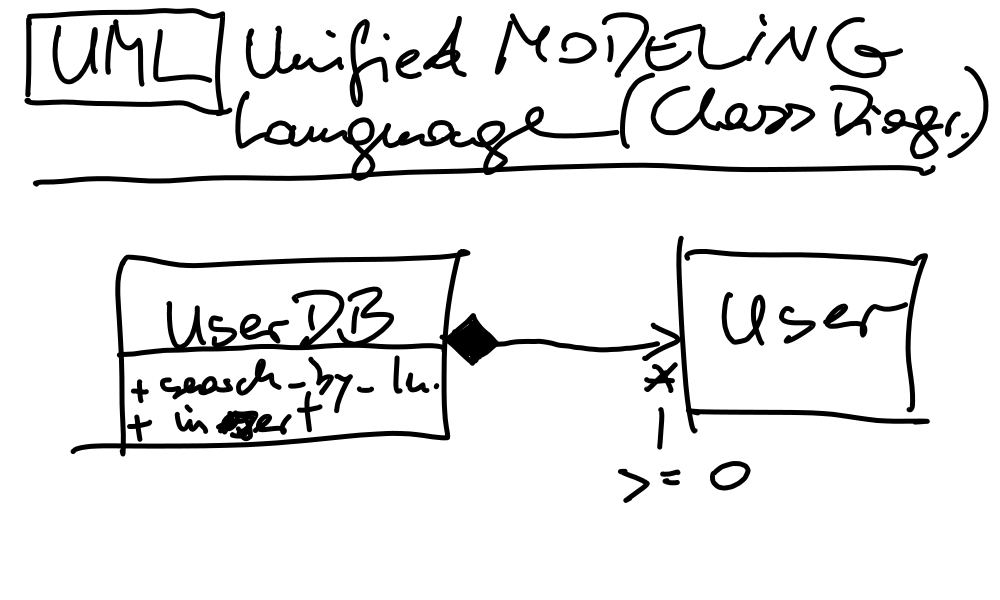 UML Unified MODELING
Language (Class Diagr.)
UserDB
+ search_by_ln.
+ insert
User
*
>= 0